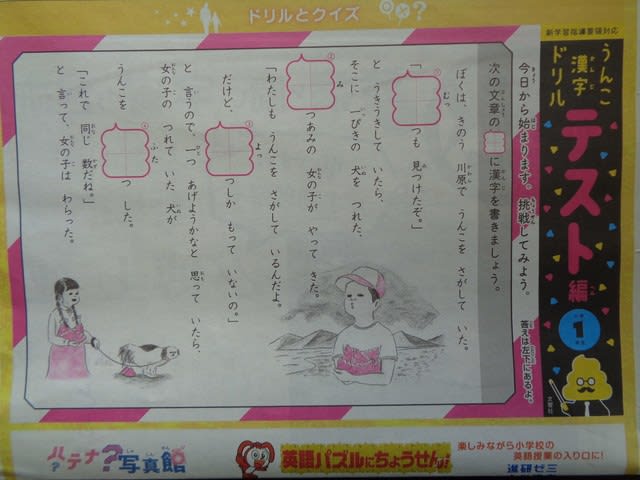 ドリルとクイズ
新学習指導要領対応
うんこ
漢字
ドリル
テスト編
小学1年生
文響社
今日から始まります。挑戦してみよう。
答えは左下にあるよ。
次の文章の に漢字を書きましょう。
ぼくは、きのう 川原で うんこを さがして いた。
「 むっ つも 見つけたぞ。」
と うきうきして いたら、
そこに 一ぴきの 犬を つれた、
み つあみの 女の子が やって きた。
「わたしも うんこを さがして いるんだよ。
だけど、 よっ つしか もって いないの。」
と 言うので、一つ あげようかなと 思って いたら、
女の子の つれて いた 犬が
うんこを ふた つ した。
「これで 同じ 数だね。」
と 言って、女の子は わらった。
ハテナ?写真館
英語パズルにちょうせん!
楽しみながら小学校の
英語授業の入り口に!
進研ゼミ